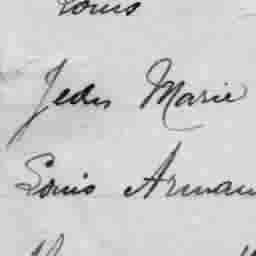 Louis
Jean Marie
Louis Arman